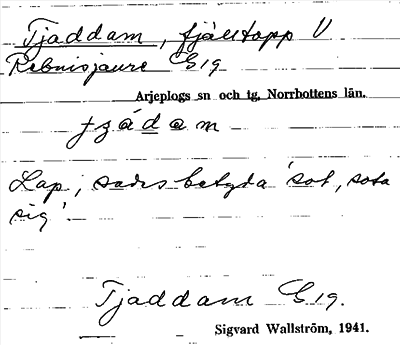 Tjaddam, fjälltopp V
Rebnisjaure G19
Arjeplogs sn och tg, Norrbottens län.
tjádam
Lap., sades betyda 'sot, sota
sig'.
Tjaddam G19.
Sigvard Wallström, 1941.